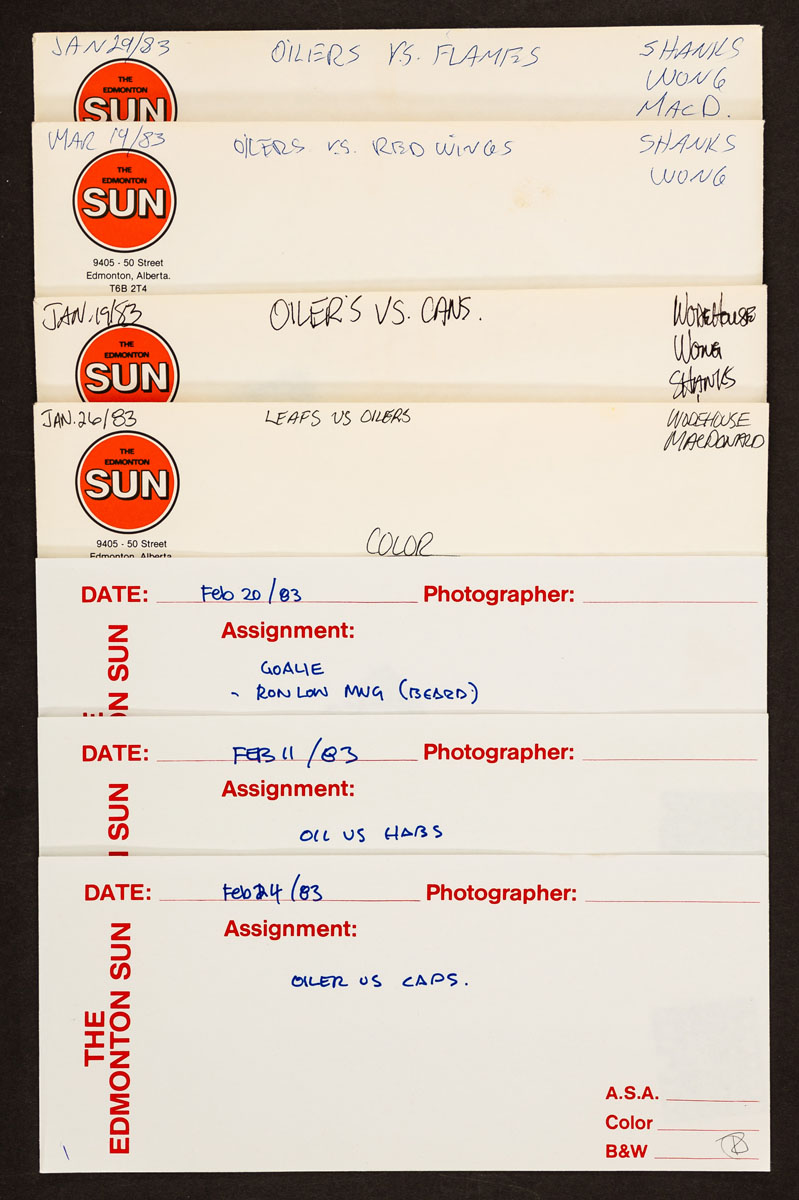 JAN 29/83 OILERS VS. FLAMES SHANKS
WONG
MACD.
THE
EDMONTON
SUN
MAR 19/83 OILERS VS. RED WINGS SHANKS
WONG
THE
EDMONTON
SUN
9405 - 50 Street
Edmonton, Alberta.
T6B 2T4
JAN. 19/83 OILER'S VS. CANS. WODEHOUSE
WONG
SHANKS
THE
EDMONTON
SUN
JAN. 26/83 LEAFS VS OILERS WODEHOUSE
MACDONARD
THE
EDMONTON
SUN
9405 - 50 Street
Edmonton, Alberta
COLOR
DATE: Feb 20/83 Photographer:
Assignment:
GOALIE
- RON LOW MUG (BEARD)
ON SUN
DATE: FEB 11/83 Photographer:
Assignment:
OIL VS HABS
SUN
DATE: Feb 24/83 Photographer:
Assignment:
OILER VS CAPS.
THE
EDMONTON SUN
A.S.A.
Color
B&W